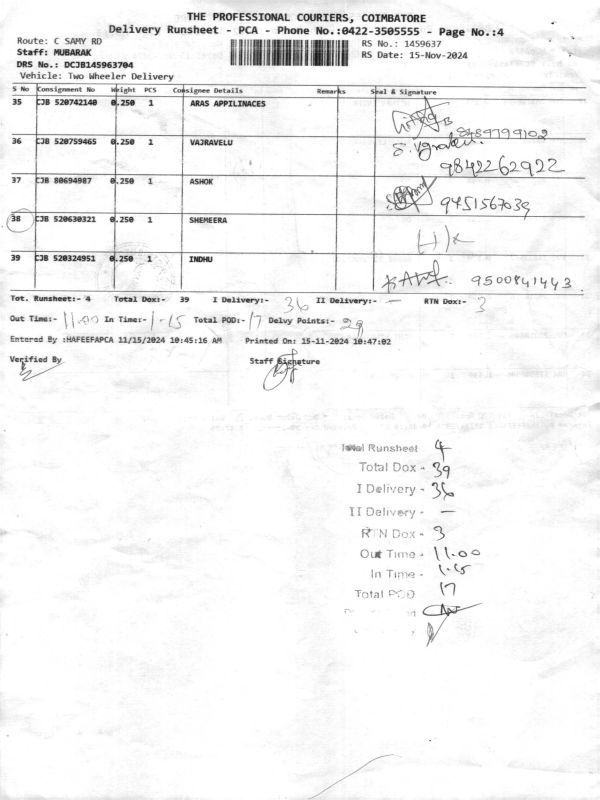 THE PROFESSIONAL COURIERS, COIMBATORE
Delivery Runsheet - PCA - Phone No.:0422-3505555 - Page No.:4
Route: C SAMY RD RS No.: 1459637
Staff: MUBARAK RS Date: 15-Nov-2024
DRS No.: DCJB145963704
Vehicle: Two Wheeler Delivery
S No Consignment No Weight PCS Consignee Details Remarks Seal & Signature
35 CJB 520742140 0.250 1 ARAS APPILINACES
8489799102
36 CJB 520759465 0.250 1 VAJRAVELU
9842262922
37 CJB 80694987 0.250 1 ASHOK
9451567039
38 CJB 520630321 0.250 1 SHEMEERA
39 CJB 520324951 0.250 1 INDHU
9500841443
Tot. Runsheet:- 4 Total Dox:- 39 I Delivery:- 36 II Delivery:- — RTN Dox:- 3
Out Time:- 11.00 In Time:- 1-15 Total POD:- 17 Delvy Points:- 29
Entered By :HAFEEFAPCA 11/15/2024 10:45:16 AM Printed On: 15-11-2024 10:47:02
Verified By Staff Signature
Total Runsheet 4
Total Dox - 39
I Delivery - 36
II Delivery - —
RTN Dox - 3
Out Time - 11.00
In Time - 1.15
Total POD 17